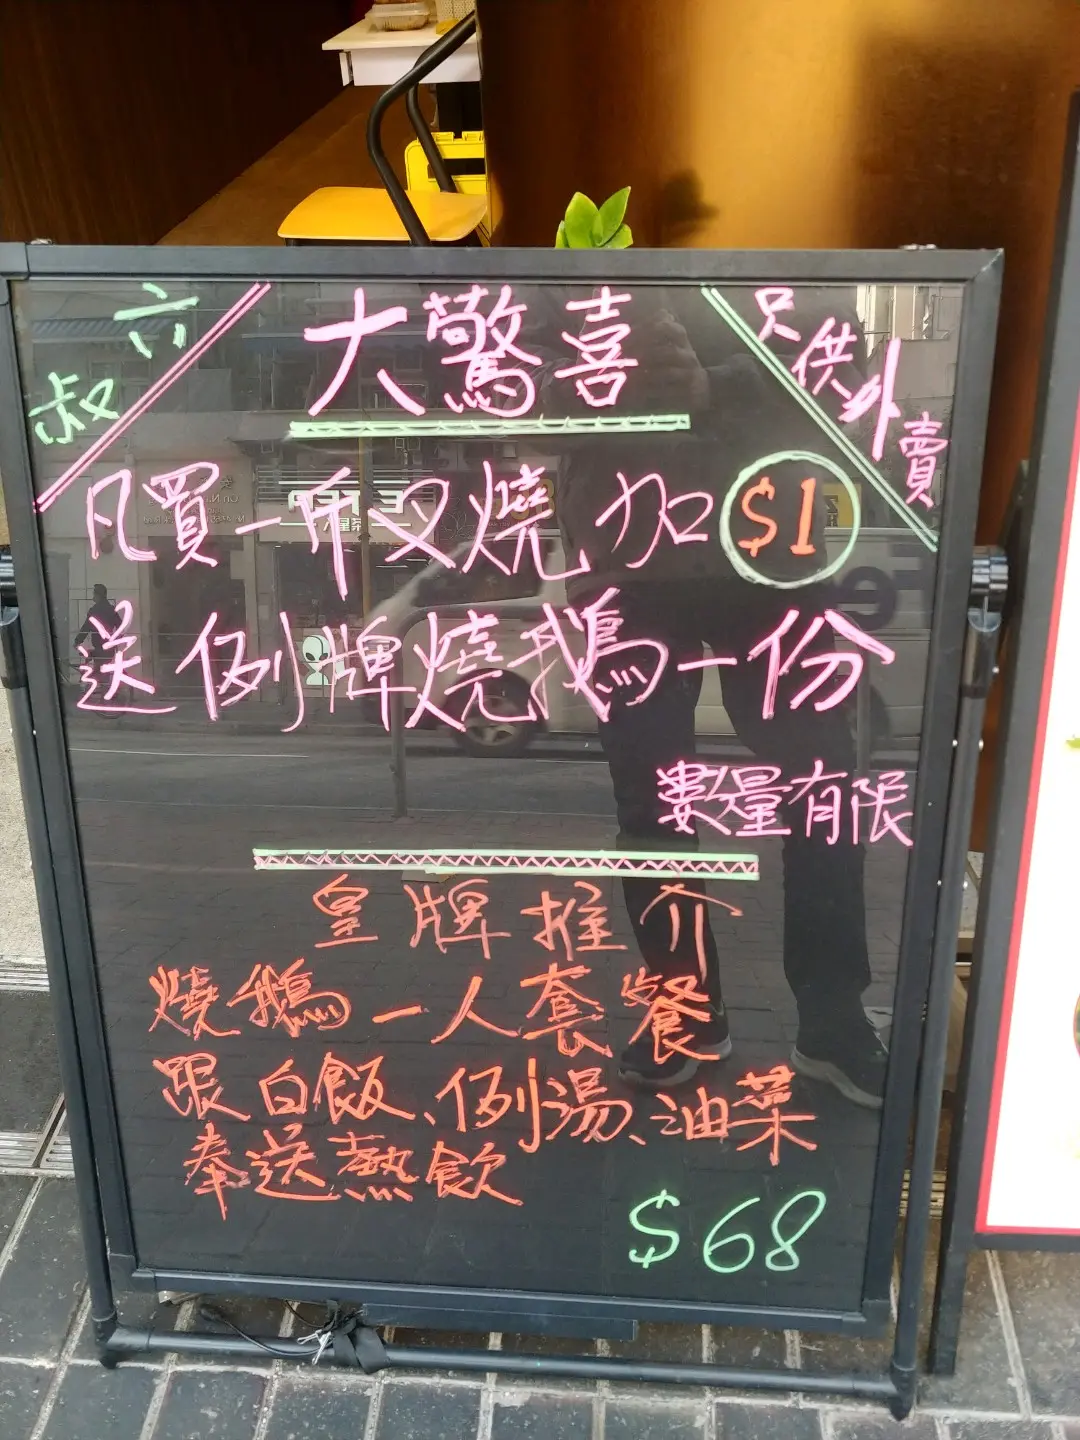 六叔
大驚喜
只供外賣
凡買一斤叉燒加$1
送例牌燒鵝一份
數量有限
皇牌推介
燒鵝一人套餐
跟白飯、例湯、油菜
奉送熱飲
$68